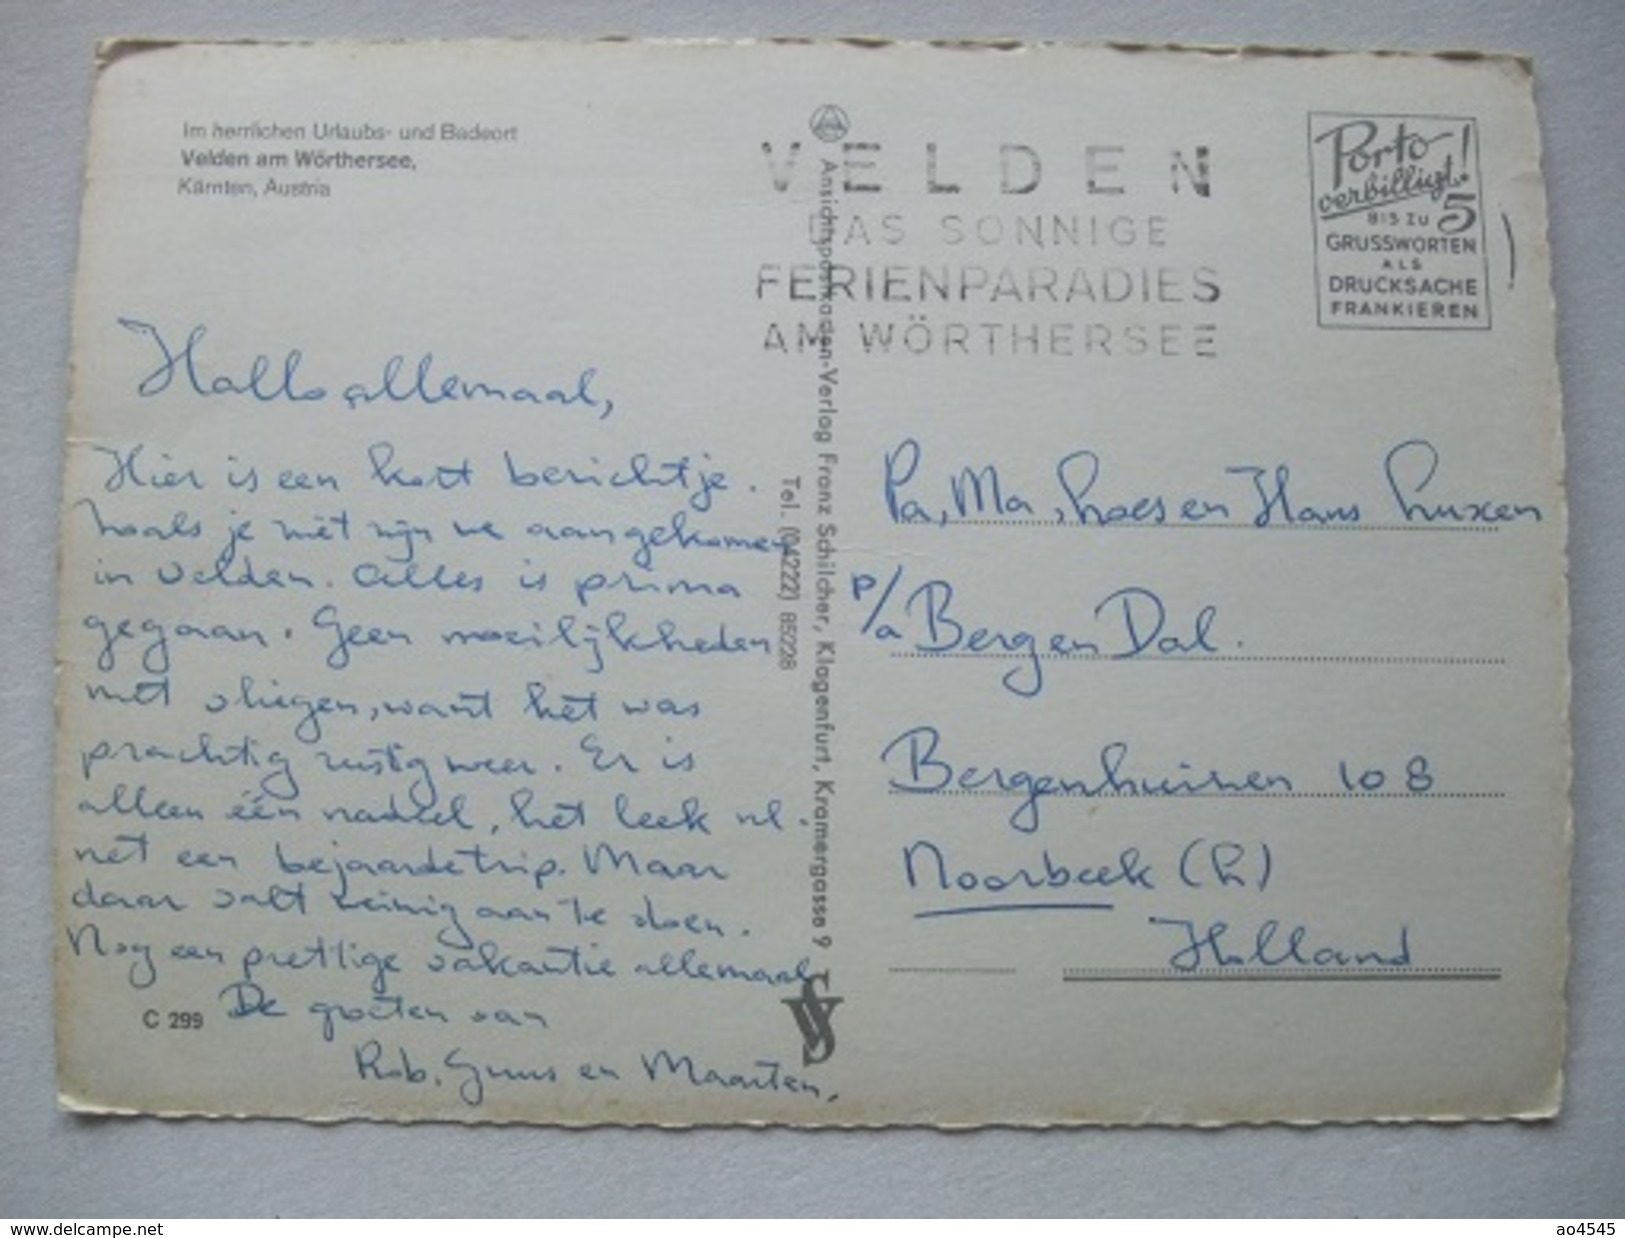 Im herrlichen Urlaubs- und Badeort
Velden am Wörthersee,
Kärnten, Austria
VELDEN
DAS SONNIGE
FERIENPARADIES
AM WÖRTHERSEE
Porto
verbilligt!
BIS ZU 5
GRUSSWORTEN
ALS
DRUCKSACHE
FRANKIEREN
Hallo allemaal,
Hier is een kort berichtje.
Zoals je ziet zijn we aangekomen
in Velden. Alles is prima
gegaan. Geen moeilijkheden
met vliegen, want het was
prachtig rustig weer. Er is
alleen één nadeel, het leek nl.
net een bejaardetrip. Maar
daar valt weinig aan te doen.
Nog een prettige vakantie allemaal
De groeten van
Rob, Guus en Maarten,
C 299
Ansichtspostkarten-Verlag Franz Schilcher, Klagenfurt, Kramergasse 9
Tel. (04222) 85228
Pa, Ma, Loes en Hans Luxen
p/a Berg en Dal.
Bergenhuizen 108
Noorbeek (L)
Holland
www.delcampe.net
ao4545